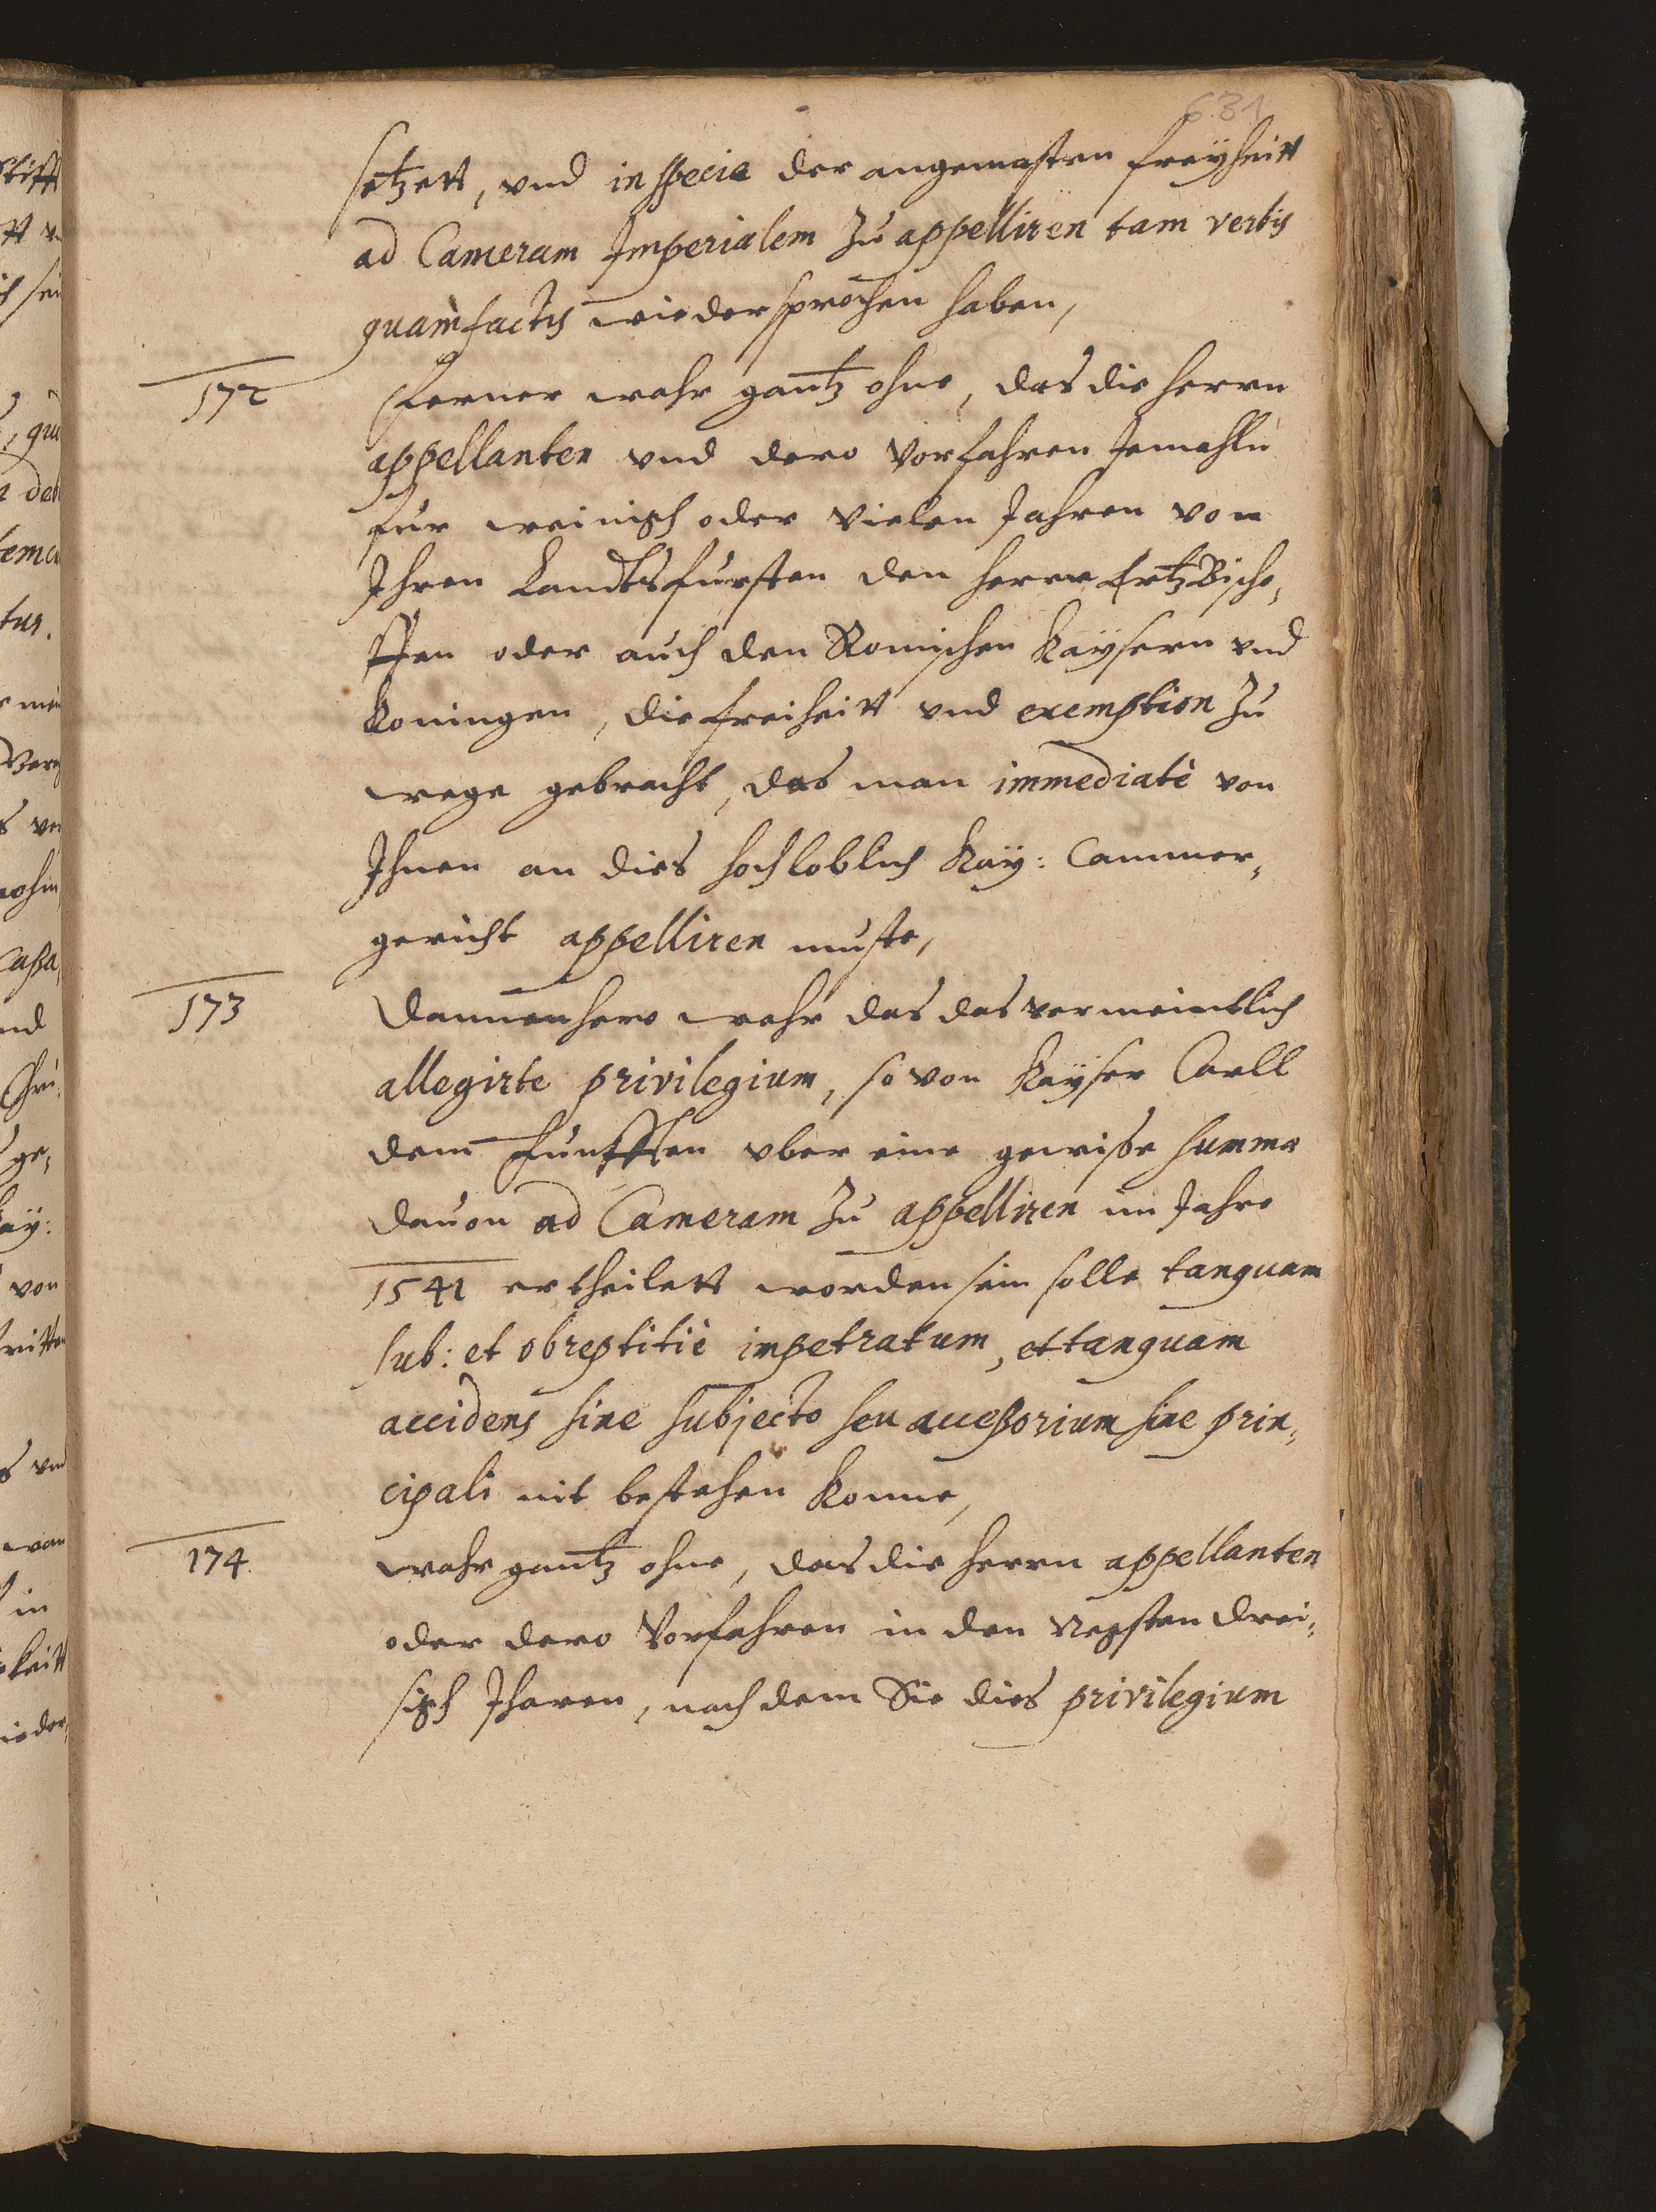 631
setzett, vnd in specie der angemasten freyheitt
ad Cameram Imperialem zu appelliren tam verbis
quam factis wiedersprochen haben,
172
Ferner wahr gantz ohne, das die herrn
appellanten vnd dero Vorfahren Jemahln
fur wenigh oder vielen Jahren von
Ihren Landtsfursten den herrn Ertzbischo,
ffen oder auch den Romischen Kaysern vnd
Koningen, die freiheitt vnd exemption zu
wege gebracht, das man immediatè von
Ihnen an dies hochloblich Kay: Cammer,
gericht appelliren muste,
173
Dannenhero wahr das das vermeintlich
allegirte privilegium, so von Kayser Carll
dem Funfften vber eine gewisse summa
dauon ad Cameram zu appelliren im Jahre
1541 ertheilett worden sein solle tanquam
sub: et obreptitiè impetratum, et tanquam
accidens sine subjecto seu accessorium sine prin,
cipali nit bestehen konne,
174
wahr gantz ohne, das die herrn appellanten
oder dero Vorfahren in den negsten drei,
sigh Jharen, nach dem Sie dies privilegium